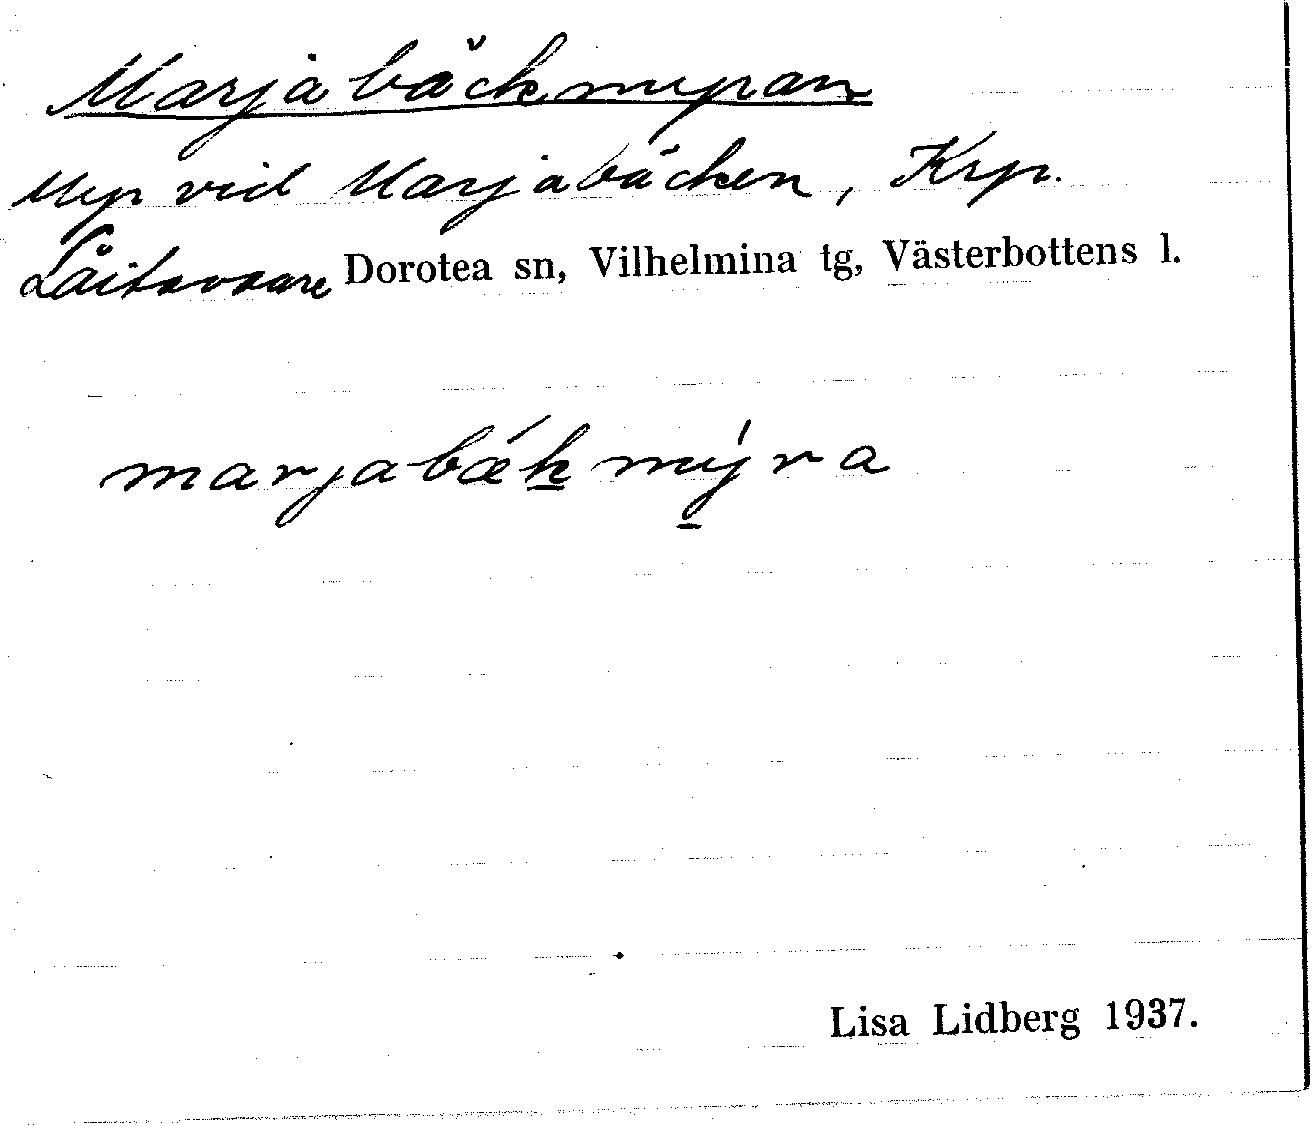 Marjabäckmyran
Myr vid Marjabäcken, Krp.
Låitavaare Dorotea sn, Vilhelmina tg, Västerbottens l.
marjabǽk mýra
Lisa Lidberg 1937.